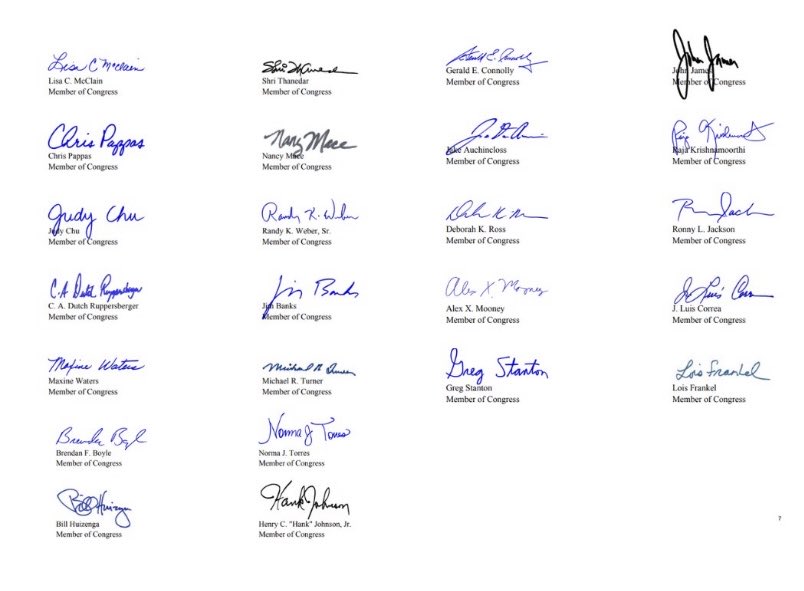 Lisa C McClain
Lisa C. McClain
Member of Congress
Shri Thanedar
Member of Congress
Gerald E. Connolly
Gerald E. Connolly
Member of Congress
John James
John James
Member of Congress
Chris Pappas
Chris Pappas
Member of Congress
Nancy Mace
Nancy Mace
Member of Congress
Jake Auchincloss
Member of Congress
Raja Krishnamoorthi
Member of Congress
Judy Chu
Judy Chu
Member of Congress
Randy K. Weber
Randy K. Weber, Sr.
Member of Congress
Deborah K. Ross
Member of Congress
Ronny L. Jackson
Member of Congress
C.A. Dutch Ruppersberger
C. A. Dutch Ruppersberger
Member of Congress
Jim Banks
Jim Banks
Member of Congress
Alex X. Mooney
Alex X. Mooney
Member of Congress
J. Luis Correa
Member of Congress
Maxine Waters
Maxine Waters
Member of Congress
Michael R. Turner
Michael R. Turner
Member of Congress
Greg Stanton
Greg Stanton
Member of Congress
Lois Frankel
Lois Frankel
Member of Congress
Brendan F. Boyle
Member of Congress
Norma J Torres
Norma J. Torres
Member of Congress
Bill Huizenga
Bill Huizenga
Member of Congress
Hank Johnson
Henry C. "Hank" Johnson, Jr.
Member of Congress
7